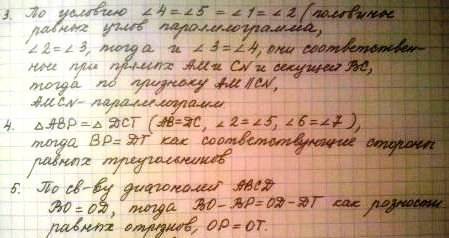 3. По условию ∠4 = ∠5 = ∠1 = ∠2 (половины
равных углов параллелограмма,
∠2 = ∠3, тогда и ∠3 = ∠4, они соответствен-
ные при прямых AM и CN и секущей BC,
тогда по признаку AM ∥ CN,
AMCN - параллелограмм
4. △ABP = △DCT (AB = DC, ∠2 = ∠5, ∠6 = ∠7),
тогда BP = DT как соответствующие стороны
равных треугольников
5. По св-ву диагоналей ABCD
BO = OD, тогда BO - BP = OD - DT как разности
равных отрезков, OP = OT.